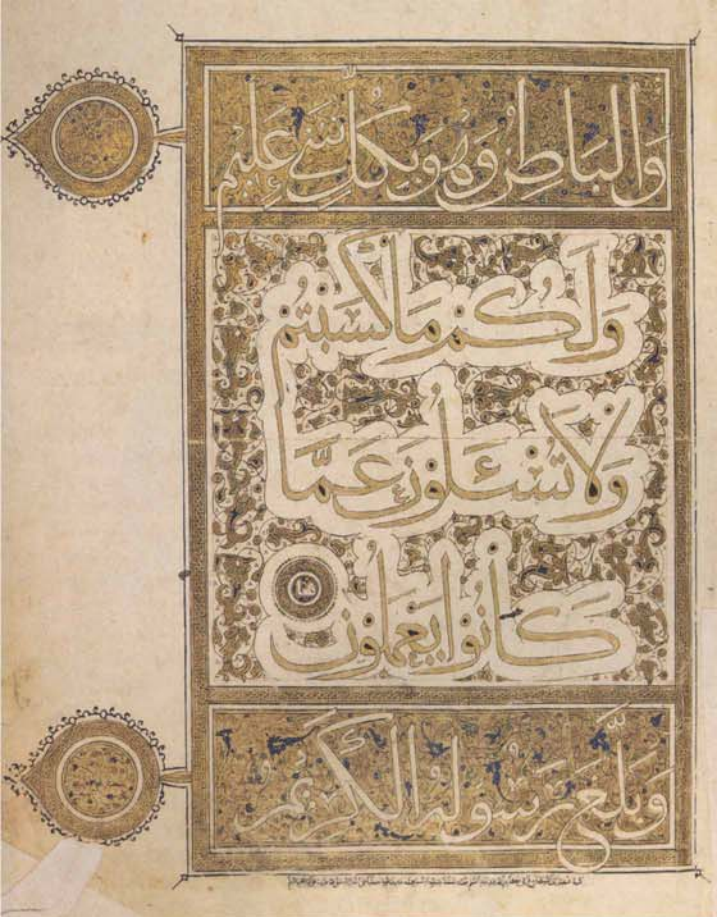 والباطن وهو بكل شيء عليم
وَلَكُمْ مَا كَسَبْتُمْ
وَلَا تُسْئَلُونَ عَمَّا
كَانُوا يَعْمَلُونَ
وبلغ رسوله الكريم